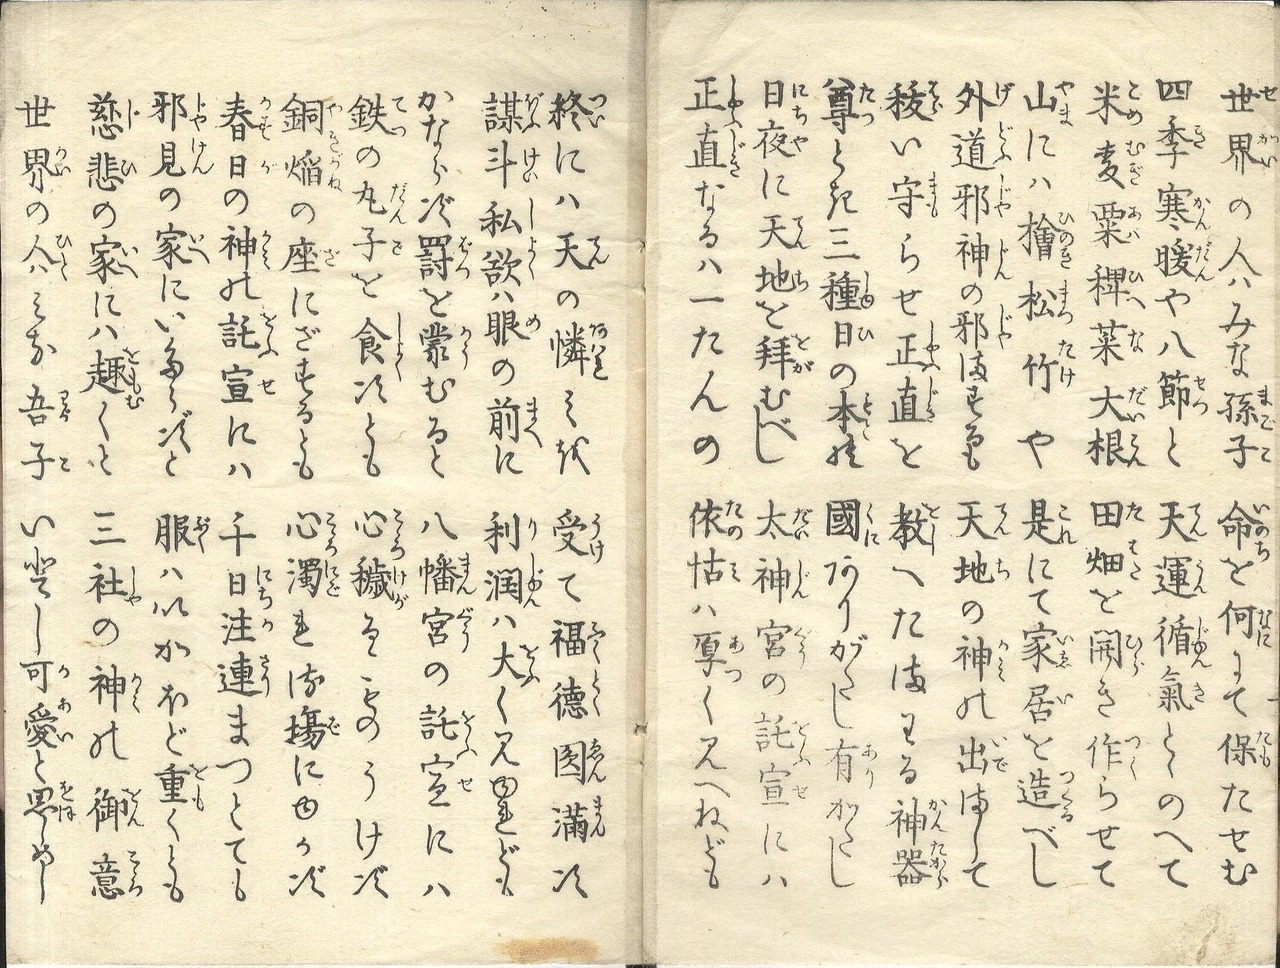 世界の人ハみな孫子 命を何にて保たせむ
四季寒暖や八節と 天運循氣とゝのへて
米麦粟稗菜大根 田畑を開き作らせて
山にハ檜松竹や 是にて家居を造べし
外道邪神の邪まをも 天地の神の出まして
穢い守らせ正直を 教へたまわる神器
尊とき三種日の本の 國ありがたし有がたし
日夜に天地を拜むべし 太神宮の託宣にハ
正直なるハ一たんの 依怙ハ厚く見へねども
終にハ天の憐みを 受て福徳圓満す
謀計私欲ハ眼の前に 利潤ハ大く見ゆれども
かならず罰を蒙むると 八幡宮の託宣にハ
鉄の丸子を食すとも 心穢るものうけず
銅焔の座にざするとも 心濁れる場にゆかず
春日の神の託宣にハ 千日注連まつとても
邪見の家にいたらずと 服ハいかほど重くとも
慈悲の家にハ趣くと 三社の神の御意
世界の人ハみな吾子 いとし可愛と思しめし